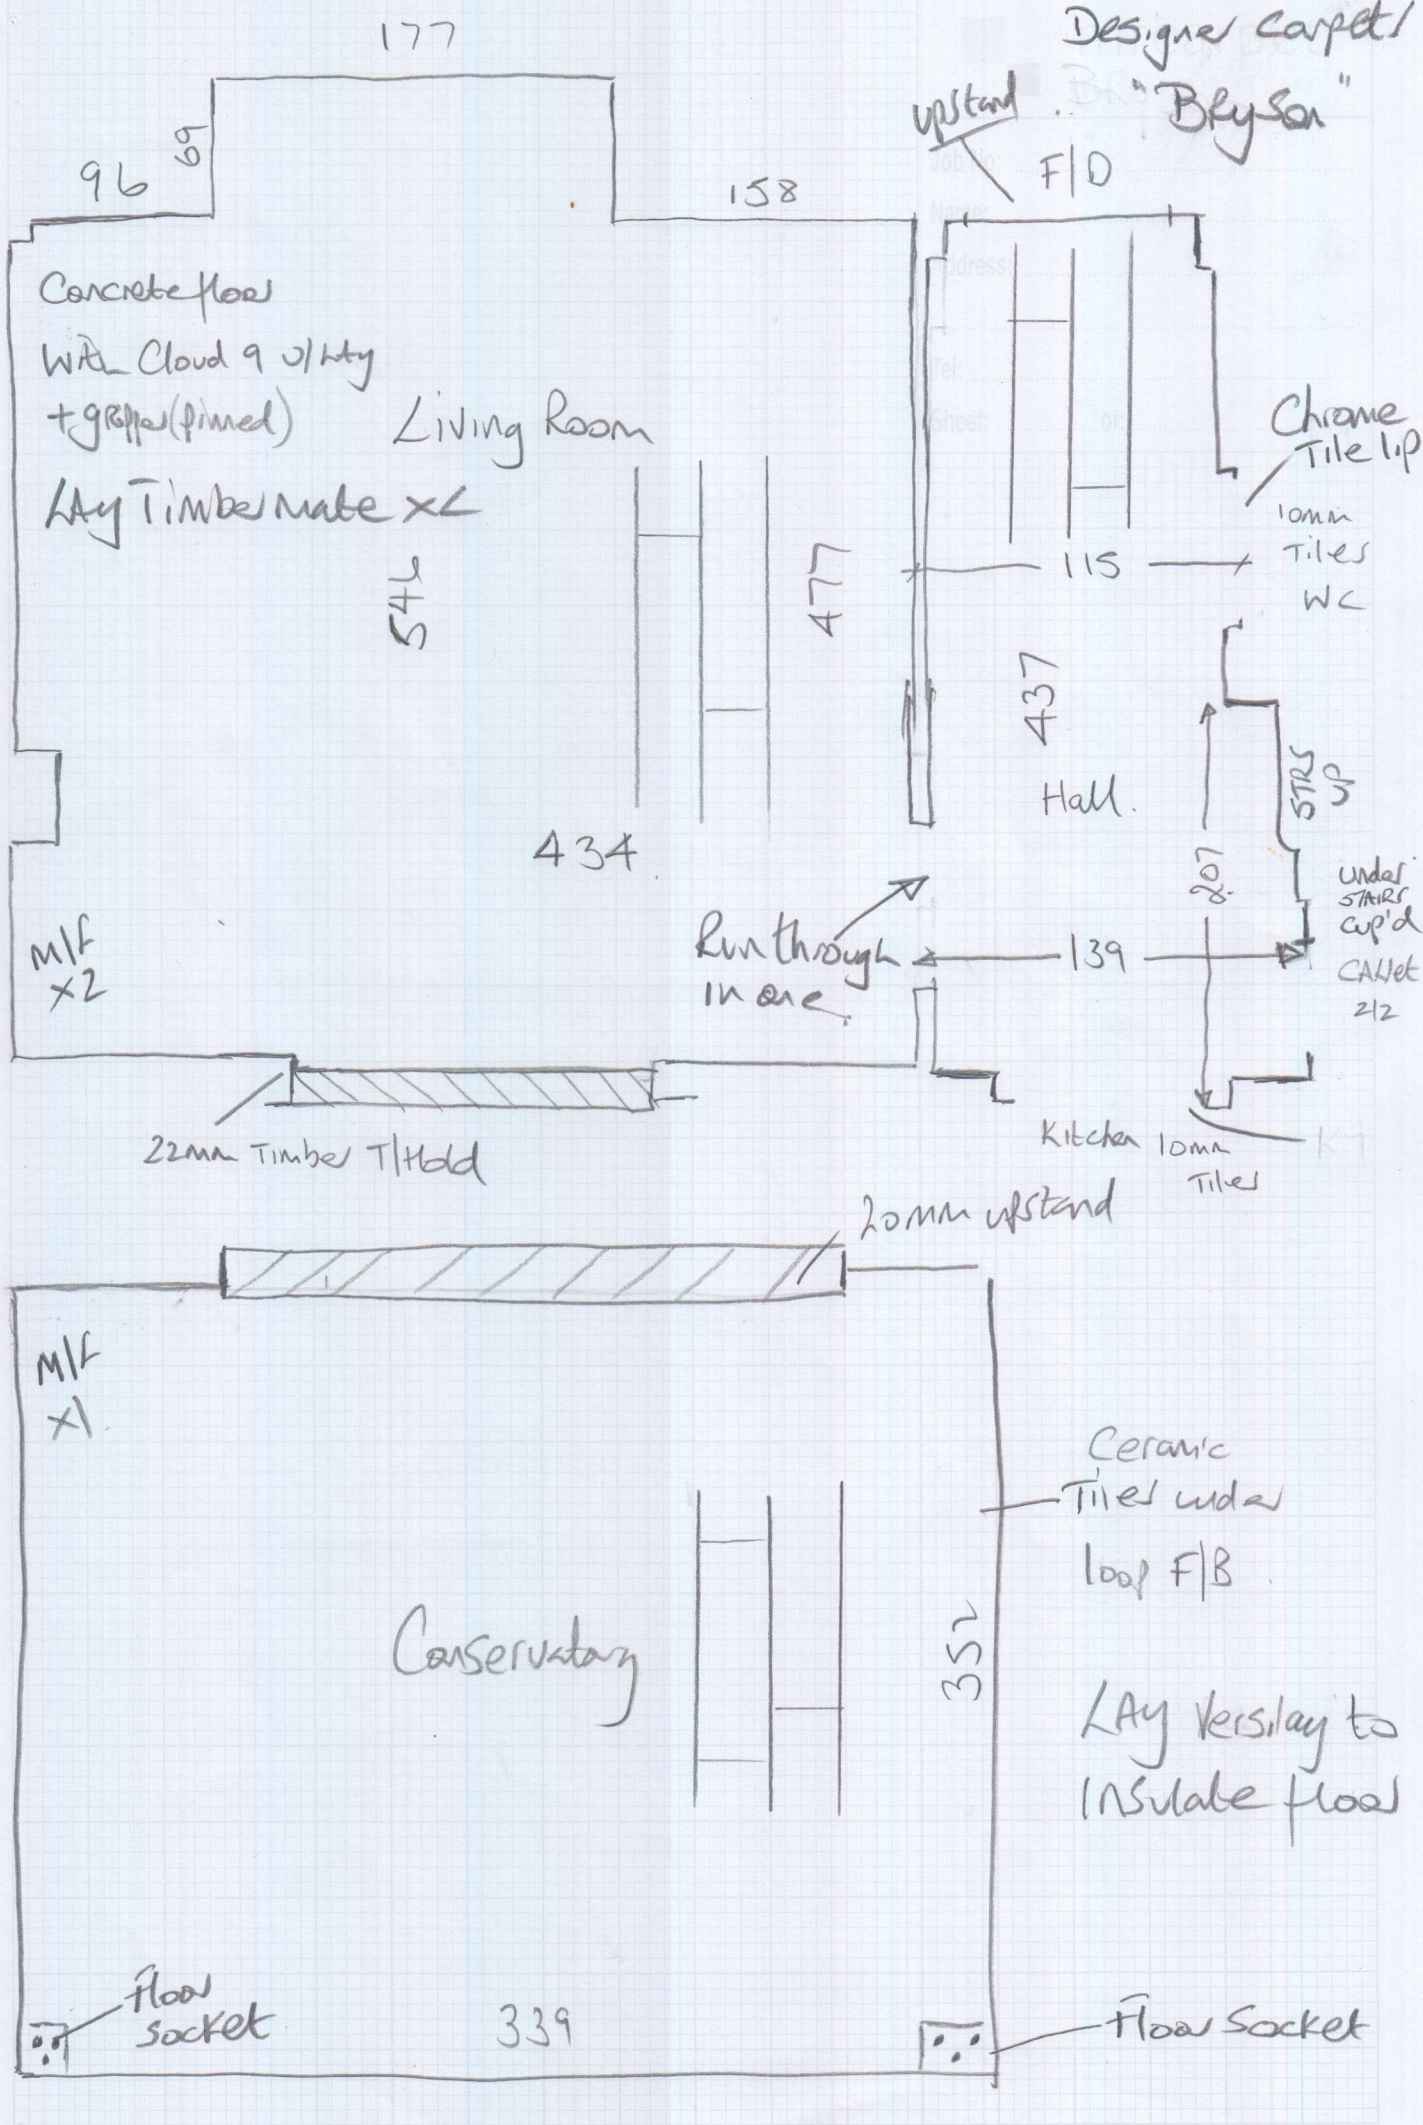 Designer Carpets
"Bryson"
177
69
96
158
upstand
F/D
Job No:
Name:
Address:
Tel:
Sheet: of:
Concrete floor
With Cloud 9 U/Lay
+ gripper (pinned)
Living Room
LAy Timbermate XL
546
477
434
Chrome
Tile lip
10mm
Tiles
WC
115
437
Hall.
STRS
UP
207
under
STAIRS
Cup'd
139
2/2
Run through
in one.
M/F
X2
22mm Timber T/Hold
Kitchen 10mm
Tiles
20mm upstand
M/F
X1
Ceramic
Tiles under
loop F/B
Conservatory
352
LAy Versilay to
INSulate floor
Floor
Socket
339
Floor Socket